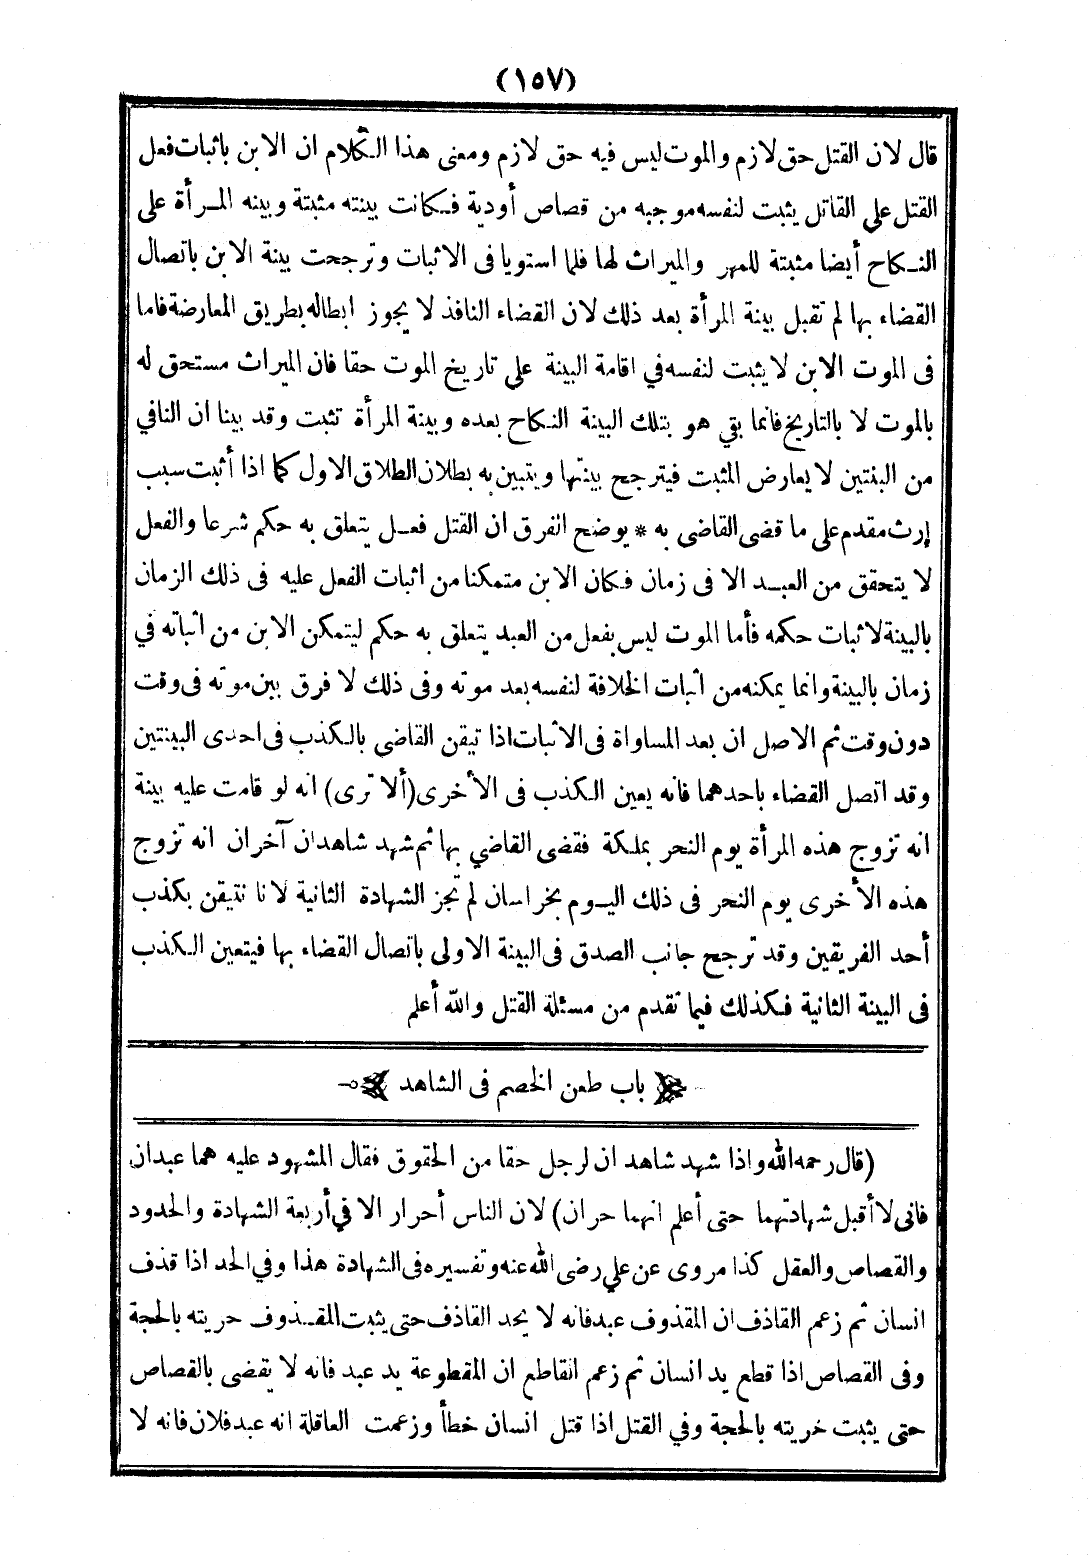 (١٥٧)
قال لان القتل حق لازم والموت ليس فيه حق لازم ومعنى هذا الكلام ان الابن باثبات فعل
القتل على القاتل يثبت لنفسه موجبه من قصاص أودية فكانت بينته مثبتة وبينه المرأة على
النكاح أيضا مثبتة للمهر والميراث لها فلما استويا فى الاثبات وترجحت بينة الابن باتصال
القضاء بها لم تقبل بينة المرأة بعد ذلك لان القضاء النافذ لا يجوز ابطاله بطريق المعارضة فاما
فى الموت الابن لا يثبت لنفسه في اقامة البينة على تاريخ الموت حقا فان الميراث مستحق له
بالموت لا بالتاريخ فانما بقي هو بتلك البينة النكاح بعده وبينة المرأة تثبت وقد بينا ان النافي
من البنتين لا يعارض المثبت فيترجح بينتها ويتبين به بطلان الطلاق الاول كما اذا أثبت سبب
إرث مقدم على ما قضى القاضى به * يوضح الفرق ان القتل فعل يتعلق به حكم شرعا والفعل
لا يتحقق من العبد الا فى زمان فكان الابن متمكنا من اثبات الفعل عليه فى ذلك الزمان
بالبينة لاثبات حكمه فأما الموت ليس بفعل من العبد يتعلق به حكم ليتمكن الابن من اثباته في
زمان بالبينة وانما يمكنه من اثبات الخلافة لنفسه بعد موته وفى ذلك لا فرق بين موته فى وقت
دون وقت ثم الاصل ان بعد المساواة فى الاثبات اذا تيقن القاضي بالكذب فى احدى البينتين
وقد اتصل القضاء باحدهما فانه يعين الكذب فى الأخرى (ألا ترى) انه لو قامت عليه بينة
انه تزوج هذه المرأة يوم النحر بملكة فقضى القاضي بها ثم شهد شاهدان آخران انه تزوج
هذه الأخرى يوم النحر فى ذلك اليوم بخراسان لم تجز الشهادة الثانية لانا نتيقن بكذب
أحد الفريقين وقد ترجح جانب الصدق فى البينة الاولى باتصال القضاء بها فيتعين الكذب
فى البينة الثانية فكذلك فيما تقدم من مسئلة القتل والله أعلم
باب طعن الخصم فى الشاهد
(قال رحمه الله واذا شهد شاهد ان لرجل حقا من الحقوق فقال المشهود عليه هما عبدان
فانى لا أقبل شهادتهما حتى أعلم انهما حران) لان الناس أحرار الا في أربعة الشهادة والحدود
والقصاص والعقل كذا مروى عن علي رضى الله عنه وتفسيره فى الشهادة هذا وفي الحد اذا قذف
انسان ثم زعم القاذف ان المقذوف عبد فانه لا يحد القاذف حتى يثبت المقذوف حريته بالحجة
وفى القصاص اذا قطع يد انسان ثم زعم القاطع ان المقطوعة يد عبد فانه لا يقضى بالقصاص
حتى يثبت خريته بالحجة وفي القتل اذا قتل انسان خطأ وزعمت العاقلة انه عبد فلان فانه لا